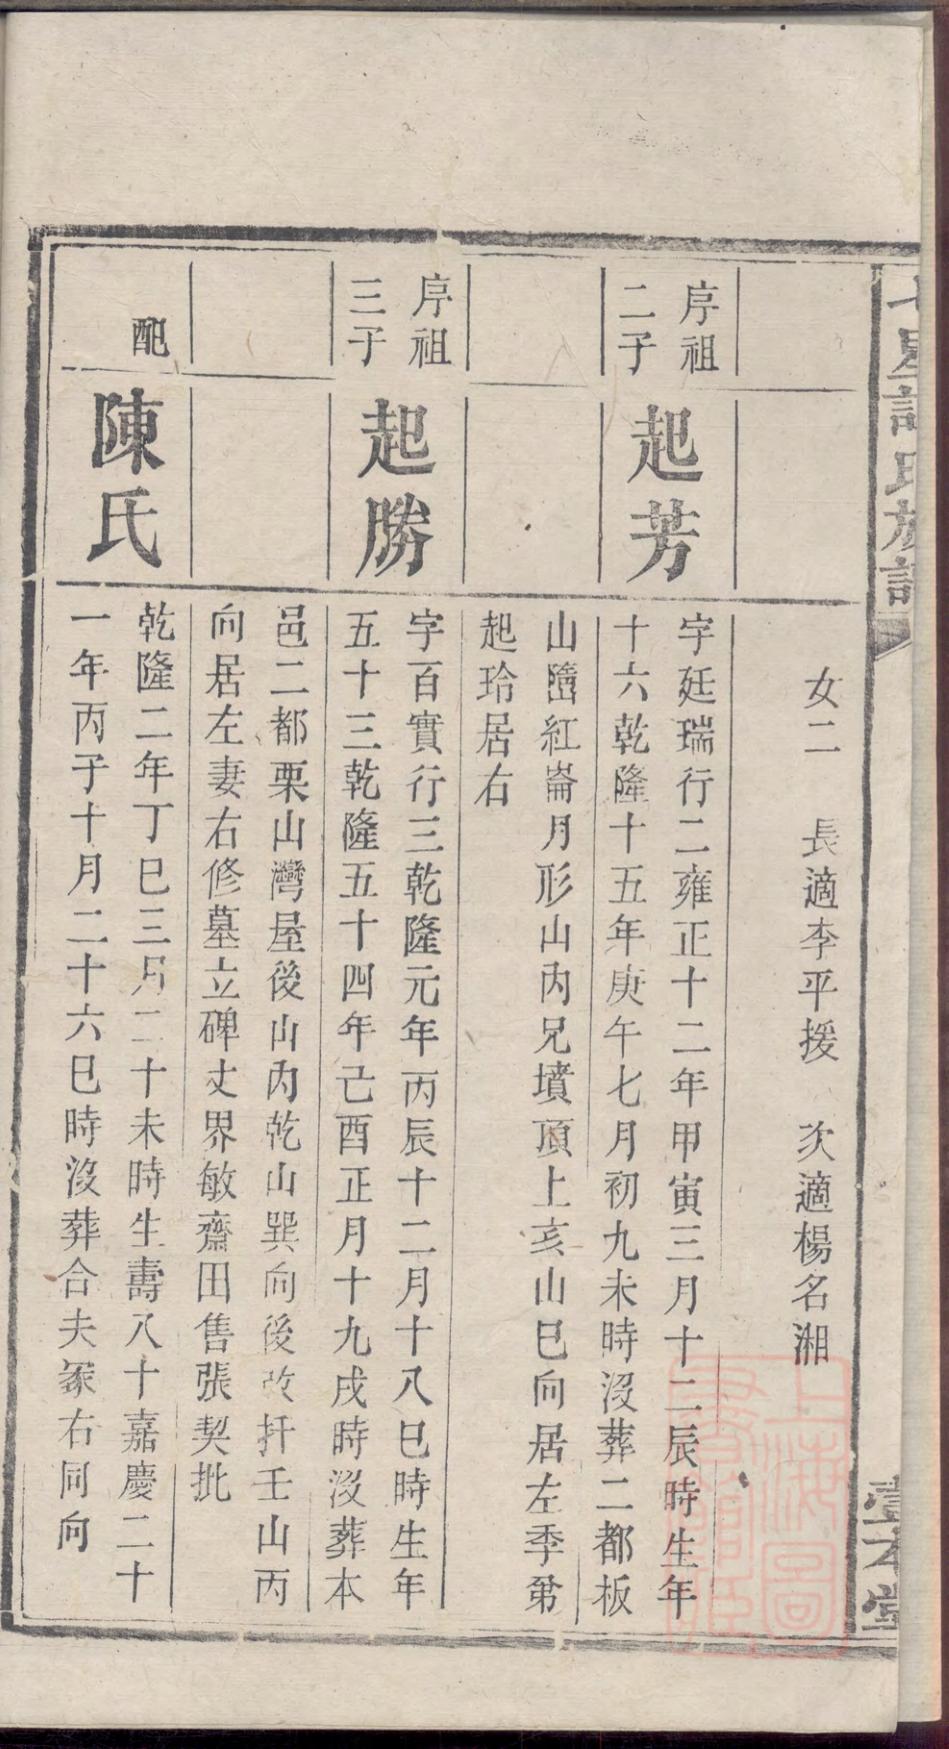 女二 長適李平援 次適楊名湘
序祖
二子
起芳
字廷瑞行二雍正十二年甲寅三月十二辰時生年
十六乾隆十五年庚午七月初九未時沒葬二都板
山㙟紅崙月形山內兄墳頂上亥山巳向居左季弟
起玲居右
序祖
三子
起勝
字百實行三乾隆元年丙辰十二月十八巳時生年
五十三乾隆五十四年己酉正月十九戌時沒葬本
邑二都栗山灣屋後山內乾山巽向後改扦壬山丙
向居左妻右修墓立碑丈界敏齋田售張契批
配
陳氏
乾隆二年丁巳三月二十未時生壽八十嘉慶二十
一年丙子十月二十六巳時沒葬合夫冢右同向